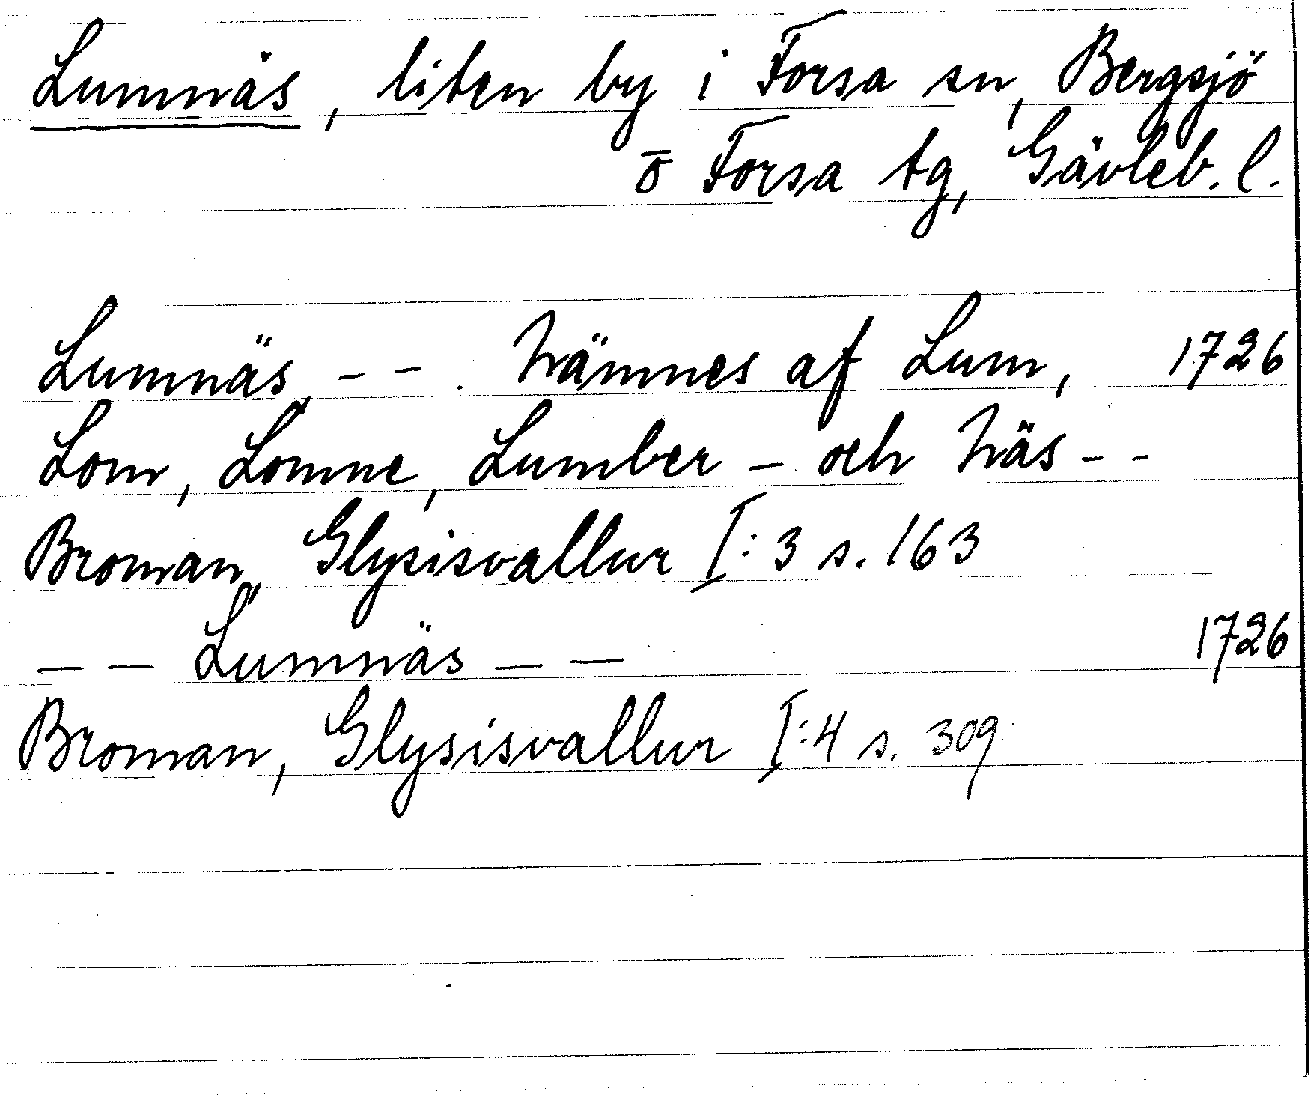 Lumnäs, liten by i Forsa sn, Bergsjö
o Forsa tg, Gävleb. l.
Lumnäs, - - . Nämnes af Lum, 1726
Lom, Lomne, Lumber - och Näs - -
Broman, Glysisvallur I:3 s. 163
- - Lumnäs - - 1726
Broman, Glysisvallur I:4 s. 309